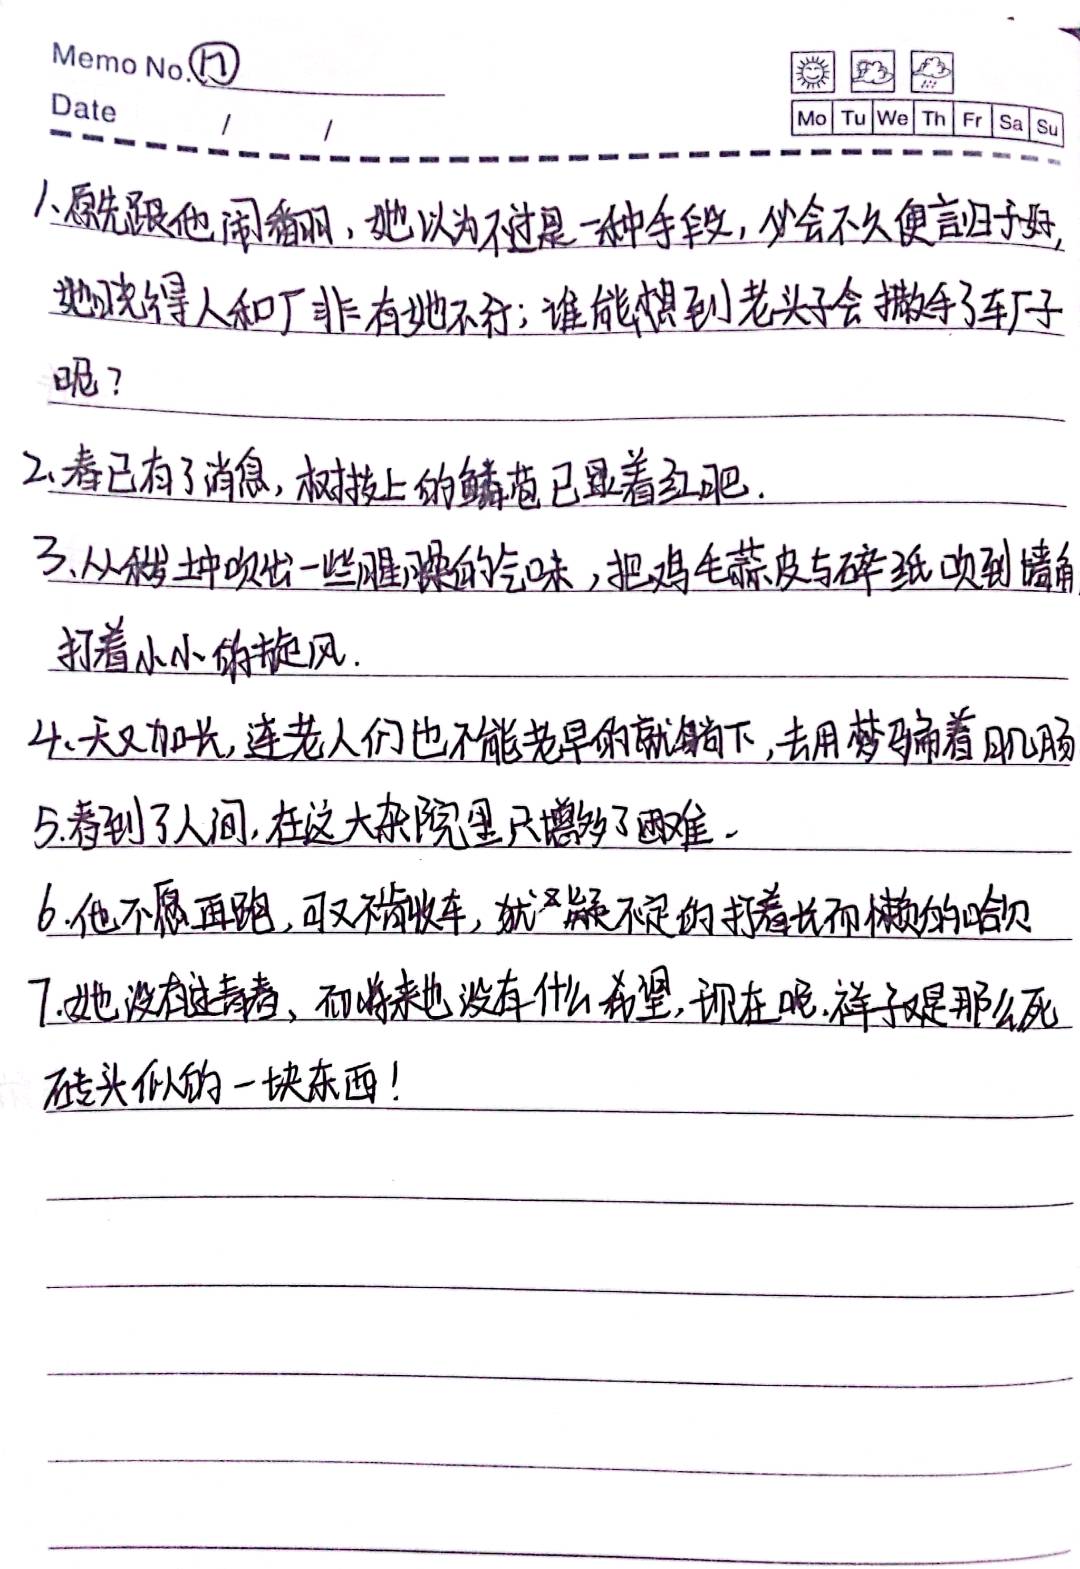 Memo No. ⑰
Mo Tu We Th Fr Sa Su
Date / /
1、原先跟他闹翻，她以为不过是一种手段，必会不久便言归于好，
她晓得人和厂非有她不行；谁能想到老头子会撒手了车厂子
呢？
2、春已有了消息，树枝上的鳞苞已显着红肥．
3、从秽土中吹出一些腥臊的气味，把鸡毛蒜皮与碎纸吹到墙角
打着小小的旋风．
4、天又加长，连老人们也不能老早的就躺下，去用梦骗着肌肠
5.春到了人间，在这大杂院里只增多了困难．
6.他不愿再跑，可又不肯收车，犹疑不定的打着长而懒的哈欠
7.她没有过青春、而将来也没有什么希望，现在呢．祥子又是那么死
砖头似的一块东西！